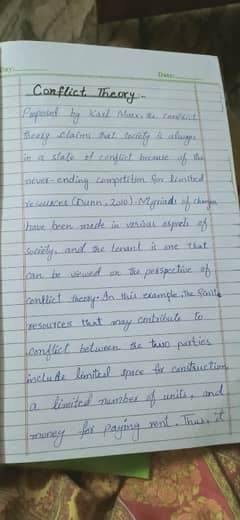 Day:
Date:
Conflict Theory :-
Proposed by Karl Marx, the conflict
theory claims that society is always
in a state of conflict because of the
never-ending competition for limited
resources (Dunn, 2010). Myriads of changes
have been made in various aspects of
society, and the tenant is one that
can be viewed in the perspective of
conflict theory. In this example, the finite
resources that may contribute to
conflict between the two parties
include limited space for construction,
a limited number of units, and
money for paying rent. Thus, it